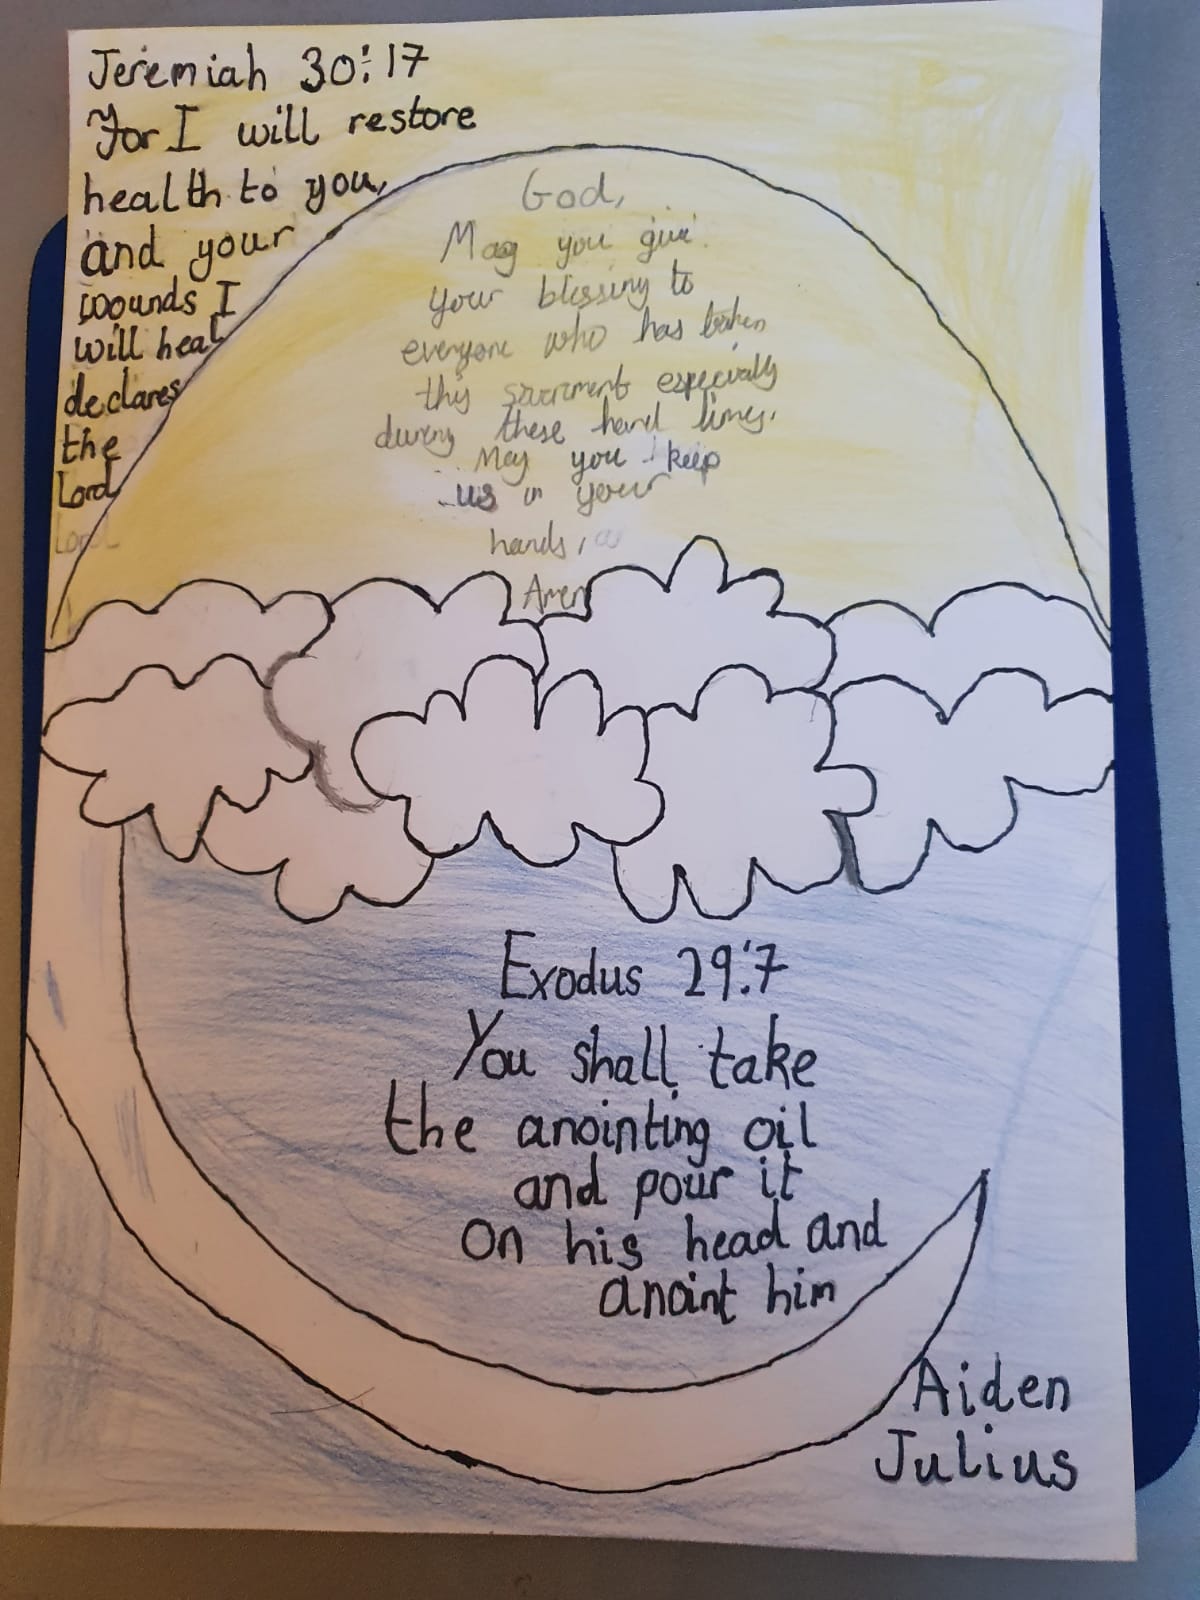 Jeremiah 30:17
For I will restore
health to you,
and your
wounds I
will heal
declares
the
Lord
Lord
God,
May you give
your blessing to
everyone who has taken
this sacrment especially
during these hard times.
May you keep
us in your
hands,
Amen
Exodus 29:7
You shall take
the anointing oil
and pour it
on his head and
anoint him
Aiden
Julius